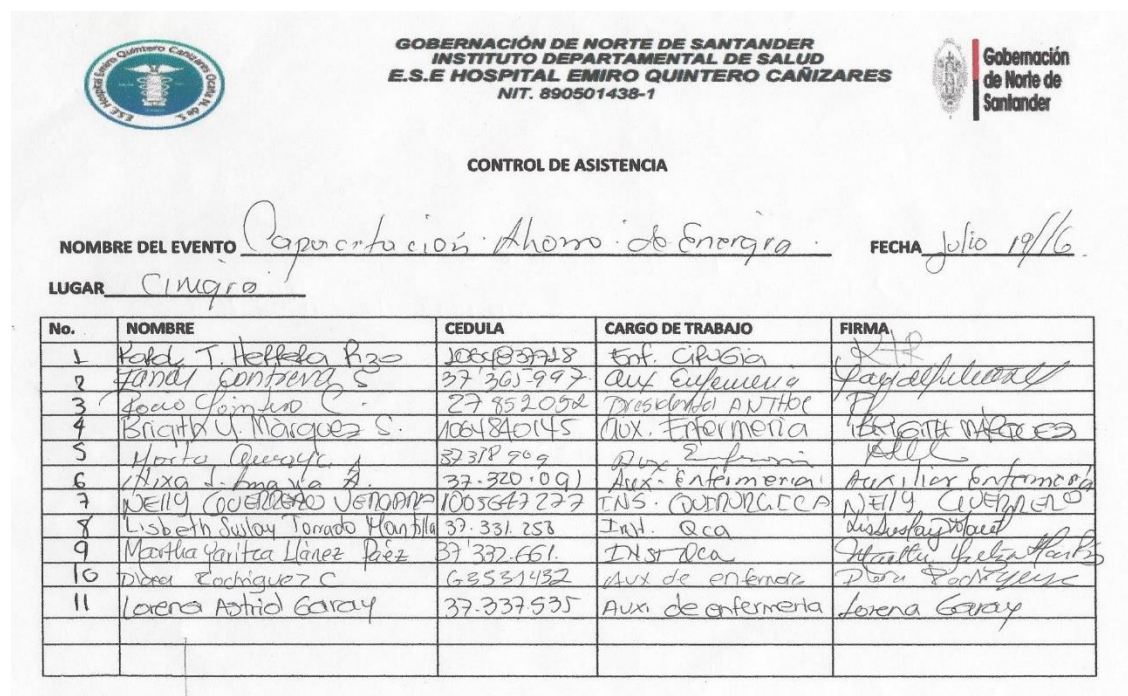 E.S.E. Hospital Emiro Quintero Cañizares Ocaña N. de S.
GOBERNACIÓN DE NORTE DE SANTANDER
INSTITUTO DEPARTAMENTAL DE SALUD
E.S.E HOSPITAL EMIRO QUINTERO CAÑIZARES
NIT. 890501438-1
Gobernación
de Norte de
Santander
CONTROL DE ASISTENCIA
NOMBRE DEL EVENTO Capacitación Ahorro de Energia. FECHA Julio 19/16
LUGAR Cirugia
No. NOMBRE CEDULA CARGO DE TRABAJO FIRMA
1 T. Herrera Rizo Enf. Cirugia
2 Contreras S 37'365-997 Aux Enfermeria
3 Rocio Quintero C. 27852052 Presidenta ANTHOC
4 Brigith Y. Marquez S. 1064840145 aux. Enfermeria BRIGITH MARQUEZ
5 Aux Enfermeria
6 Amaya A. 37.320.091 Aux. Enfermeria Auxiliar Enfermeria
7 NEllY GUERRERO VERGARA 1005647277 INS. QUIRURGICA NEllY GUERRERO
8 Lisbeth Sulay Torrado Mantilla 37.331.258 Inst. Qca
9 Martha Yaritza Llánez Páez 37'332.661. Inst Qca
10 Diora Rodriguez C 63531432 Aux de enfermeria Diora Rodriguez
11 Lorena Astrid Garay 37.337.535 Auxi de enfermeria Lorena Garay